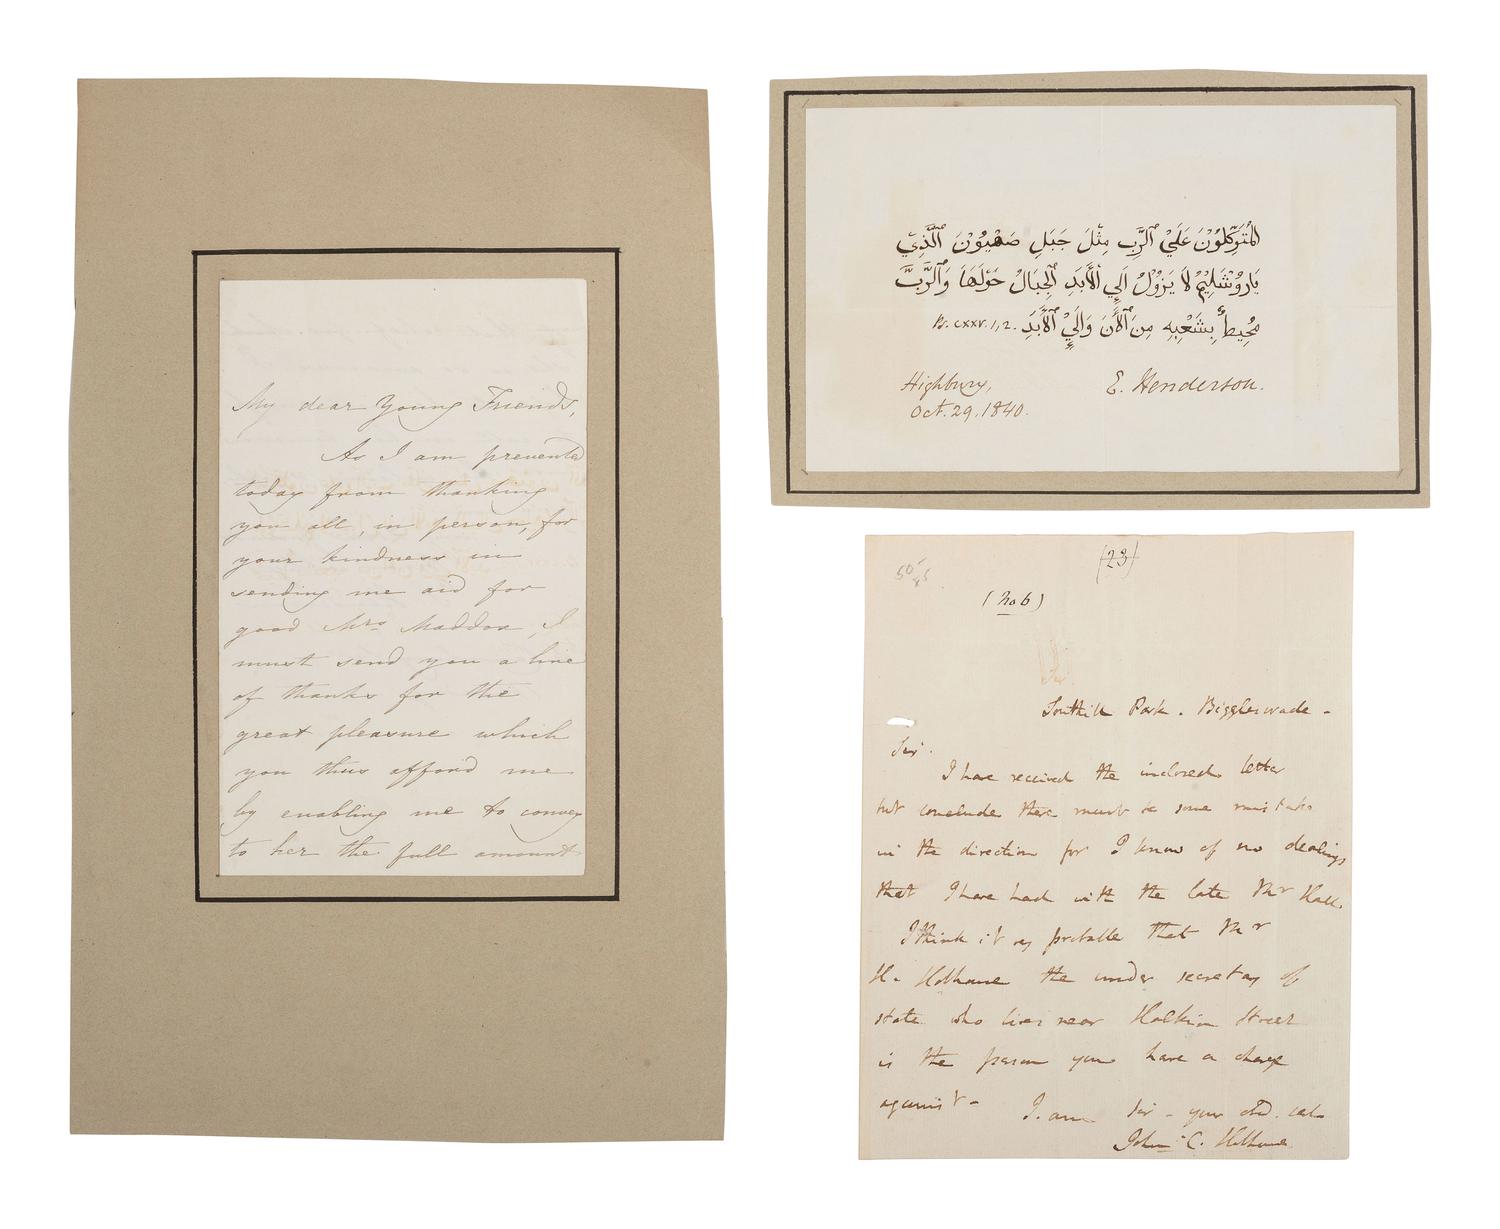 My dear Young Friends,
As I am prevented
today from thanking
you all, in person, for
your kindness in
sending me aid for
good Mrs Maddox, I
must send you a line
of thanks for the
great pleasure which
you thus afford me
by enabling me to convey
to her the full amount
المُتَوَكِّلُوْنَ عَلَيْ ٱلرَّبِ مِثْلَ جَبَلِ صَهْيُوْنَ ٱلَّذِي
يَارُوْشَلِيْمُ لاَ يَزُوْلُ اَلِي ٱلْأَبَدِ ٱلْجِبَالُ حَوْلَهَا وَٱلرَّبُّ
مُحِيطٌ بِشَعْبِهِ مِنَ ٱلْأَنَ وَاِلَيْ ٱلْأَبَدِ Ps. cxxv. 1, 2.
Highbury, E. Henderson.
Oct. 29. 1840.
(23)
50
(No 6)
Southill Park. Biggleswade -
Sir.
I have received the inclosed letter
but conclude there must be some mistake
in the direction for I know of no dealings
that I have had with the late Mr Hall.
I think it very probable that Mr
H. Hobhouse the under secretary of
state who lives near Halkin Street
is the person you have a charge
against - I am Sir - your obd.
John C. Hobhouse